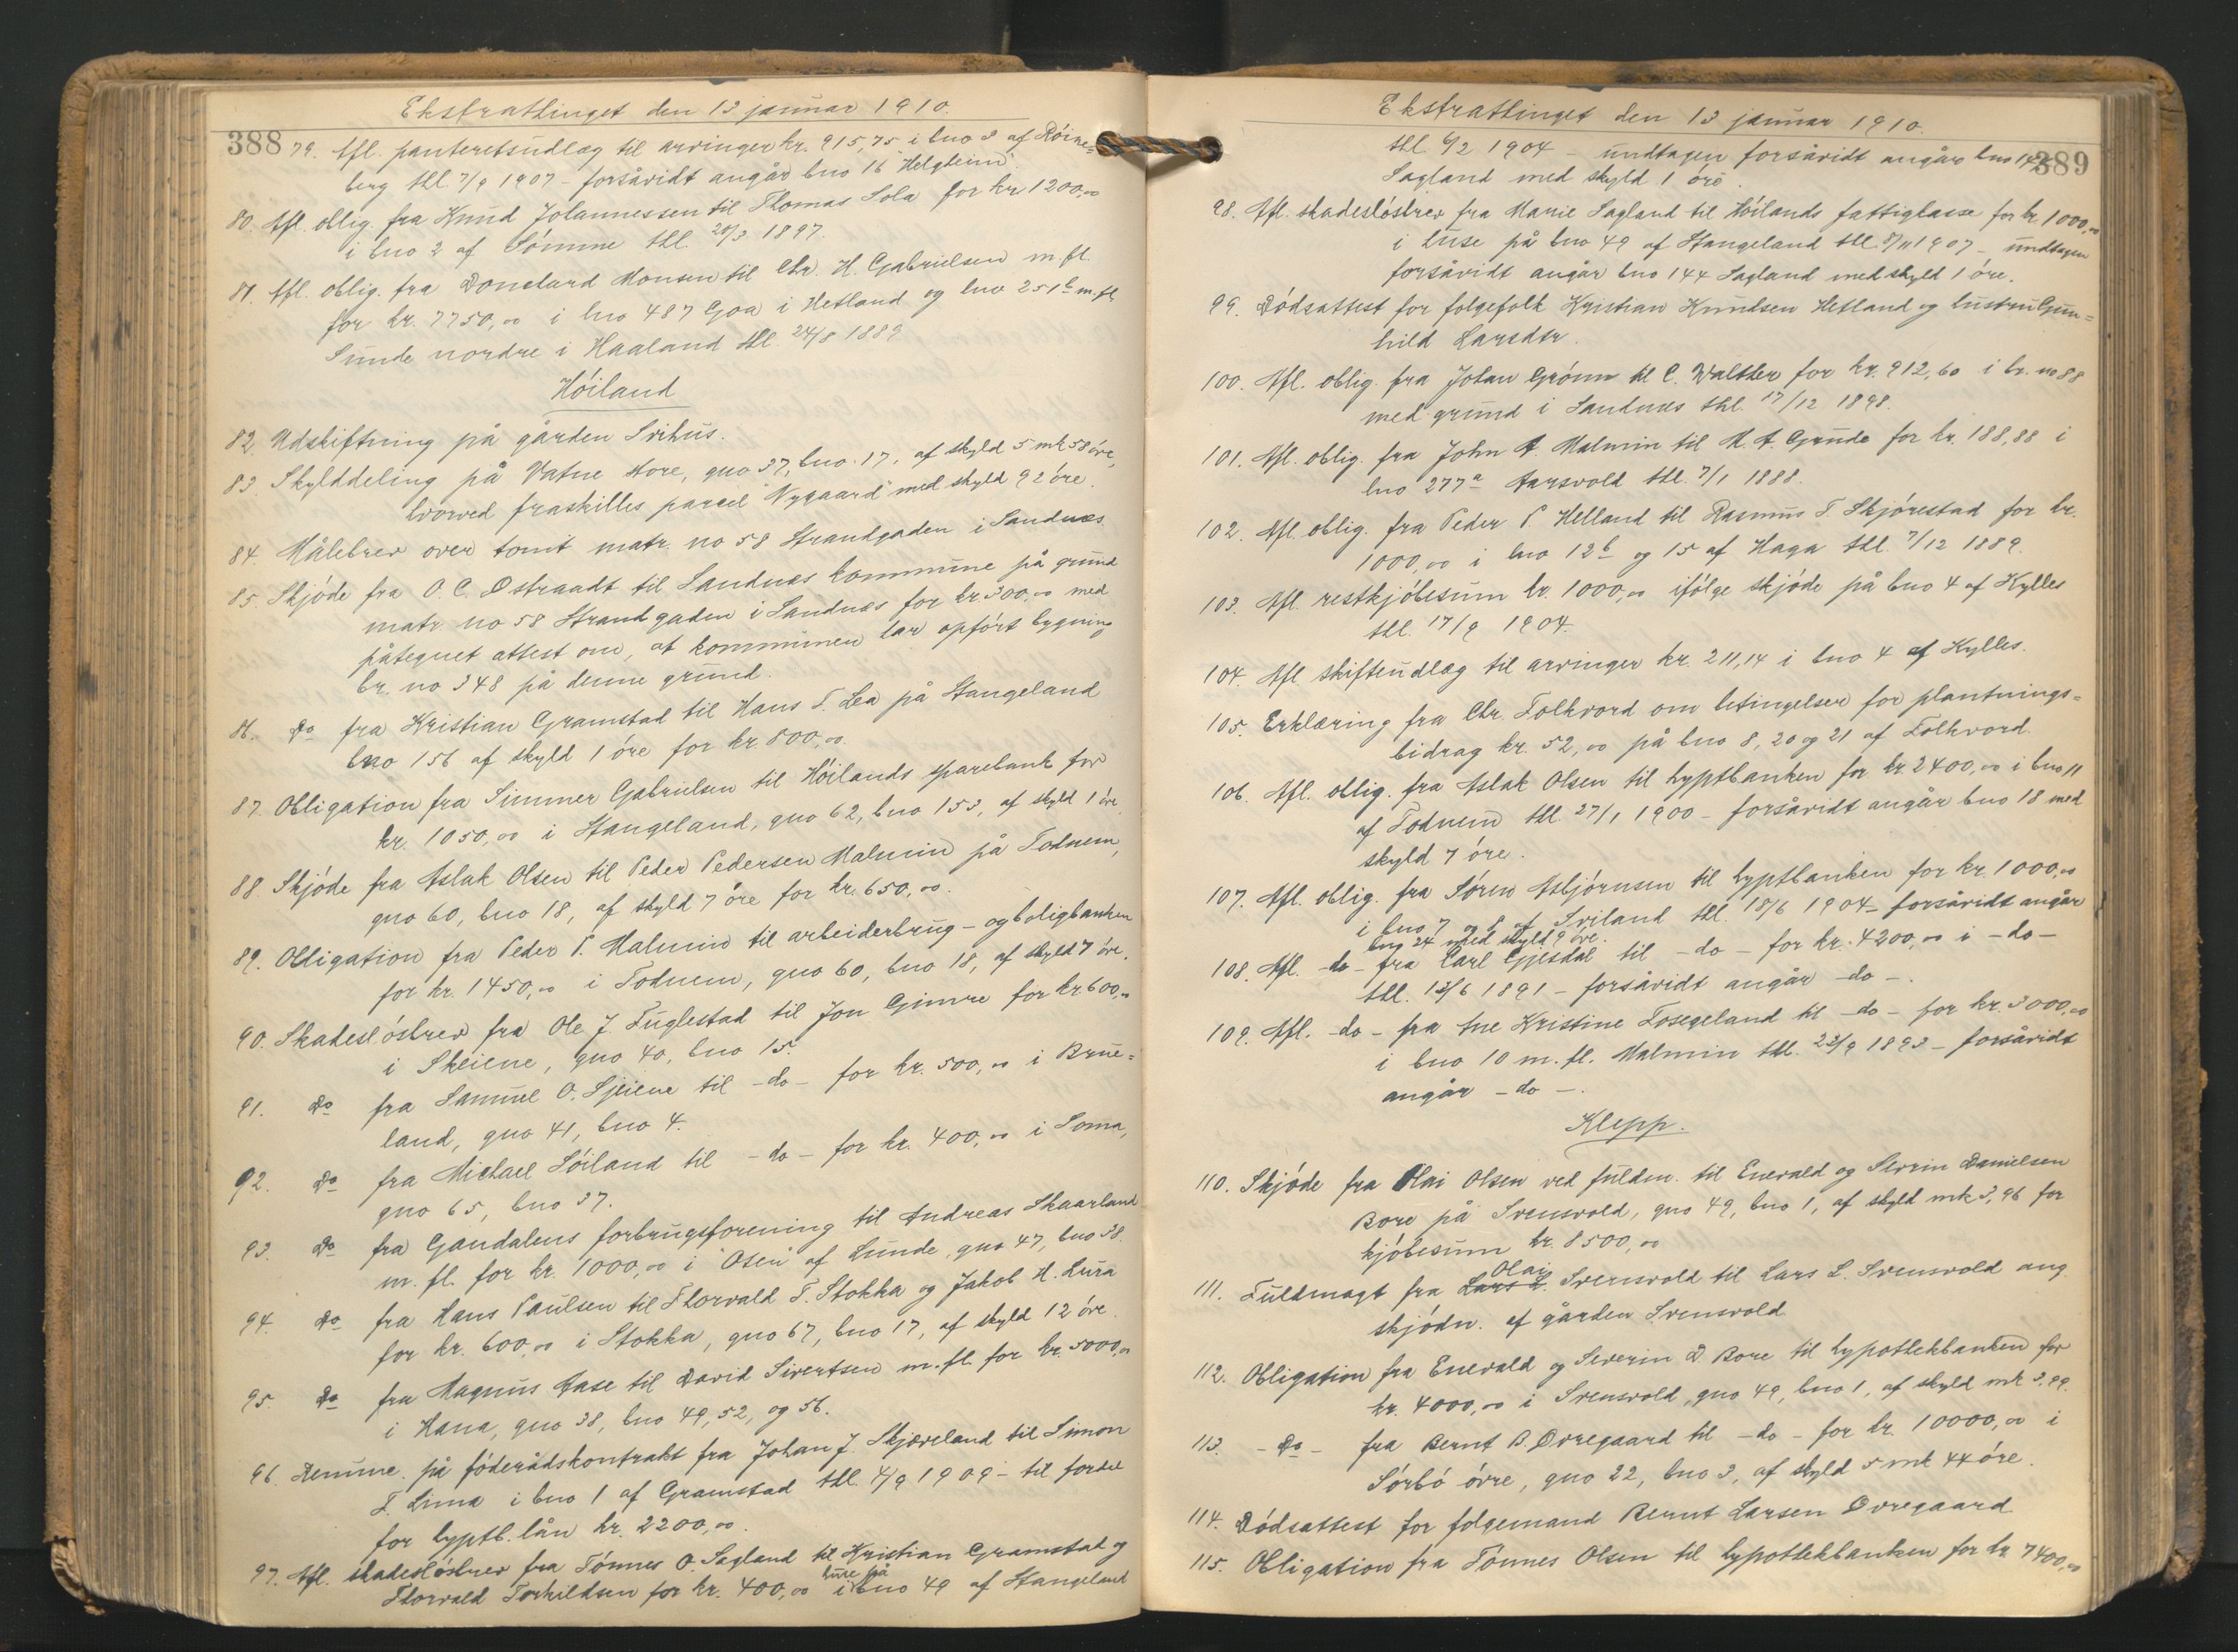 Ekstrathinget den 13 januar 1910.
388
79. Afl. panteretsudlæg til arvinger kr. 915,75 i bno 3 af Röine=
berg thl. 7/9 1907 - forsåvidt angår bno 16 "Helgheim".
80. Afl. oblig. fra Knud Johannessen til Thomas Sola for kr 1200,00
i bno 2 af Sömme thl. 20/3 1897.
81. Afl. oblig. fra Monsen til Chr. H. Gabrielsen m. fl.
for kr. 7750,00 i bno 487 Goa i Hetland og bno 251b m. fl.
Sunde nordre i Haaland thl. 24/8 1889
Höiland
82. Udskiftning på gården Svihus.
83. Skylddeling på Vatne store, gno 37, bno 17, af skyld 5 mk 58 öre,
hvorved fraskilles parcel "Nygaard" med skyld 92 öre.
84. Målebrev over tomt matr. no 58 Strandgaden i Sandnæs.
85. Skjöde fra O. C. Østraadt til Sandnæs kommune på grund
matr no 58 Strandgaden i Sandnæs for kr 300,00 med
påtegnet attest om, at kommunen har opfört bygning
br. no 348 på denne grund.
86. Do fra Kristian Gramstad til Hans T. Lea på Stangeland
bno 156 af skyld 1 öre for kr. 800,00.
87. Obligation fra Simmer Gabrielsen til Höilands sparebank for
kr. 1050,00 i Stangeland, gno 62, bno 153, af skyld 1 öre.
88. Skjöde fra Aslak Olsen til Peder Pedersen Malmin på Todnem,
gno 60, bno 18, af skyld 7 öre for kr. 650,00.
89. Obligation fra Peder P. Malmin til arbeiderbrug- og boligbanken
for kr. 1450,00 i Todnem, gno 60, bno 18, af skyld 7 öre.
90. Skadeslösbrev fra Ole J. Fuglestad til Jon Gimre for kr. 600,00
i Skeiene, gno 40, bno 15.
91. Do fra Samuel O. Sjeiene til -do- for kr. 500,00 i Brue=
land, gno 41, bno 4.
92. Do fra Michael Löiland til -do- for kr. 400,00 i Soma,
gno 65, bno 37.
93. Do fra Gandalens forbrugsforening til Andreas Skaarland
m. fl. for kr. 1000,00 i "Osen" af Lunde, gno 47, bno 38.
94. Do fra Hans Paulsen til Thorvald T. Stokka og Jakob H. Lura
for kr. 600,00 i Stokka, gno 67, bno 17, af skyld 12 öre.
95. Do fra Magnus Aase til David Sivertsen m. fl. for kr. 5000,00
i Hana, gno 38, bno 49, 52, og 56.
96. på föderådskontrakt fra Johan J. Skjæveland til Simon
T. Lima i bno 1 af Gramstad thl. 4/9 1909 - til fordel
for hyptb. lån kr. 2200,00.
97. Afl. skadeslösbrev fra Tönnes O. Sagland til Kristian Gramstad og
Thorvald Torkildsen for kr. 400,00 i huse på bno 49 af Stangeland
Ekstrathinget den 13 januar 1910.
389
thl. 6/2 1904 - undtagen forsåvidt angår bno 144
Sagland med skyld 1 öre.
98. Afl. skadeslösbrev fra Marie Sagland til Höilands fattigkasse for kr. 1000,00
i huse på bno 49 af Stangeland thl. 8/11 1907 - undtagen
forsåvidt angår bno 144 Sagland med skyld 1 öre.
99. Dödsattest for folgefolk Kristian Knudsen Hetland og hustru Gun=
hild Larsdtr.
100. Afl. oblig. fra Johan Grönn til C. Walther for kr. 912,60 i br. no 88
med grund i Sandnæs thl. 17/12 1898.
101. Afl. oblig. fra John A. Malmin til M. A. Grude for kr. 188,88 i
bno 277a Aarsvold thl. 7/1 1888.
102. Afl. oblig. fra Peder P. Helland til Rasmus T. Skjörestad for kr.
1000,00 i bno 12b og 15 af Haga thl. 7/12 1889.
103. Afl. restkjöbesum kr. 1000,00 ifölge skjöde på bno 4 af Kylles
thl. 17/9 1904.
104. Afl. skifteudlæg til arvinger kr. 211,14 i bno 4 af Kylles.
105. Erklæring fra Chr. Folkvord om betingelser for plantnings=
bidrag kr. 52,00 på bno 8, 20 og 21 af Folkvord.
106. Afl. oblig. fra Aslak Olsen til hyptbanken for kr. 2400,00 i bno 11
af Todnem thl. 27/1 1900 - forsåvidt angår bno 18 med
skyld 7 öre.
107. Afl. oblig. fra Sören Asbjörnsen til hyptbanken for kr. 1000,00
i bno 7 og 8 af Sviland thl. 18/6 1904 - forsåvidt angår
bno 24 med skyld 9 öre.
108. Afl. -do- fra Carl Gjesdal til -do- for kr. 4200,00 i -do-
thl. 13/6 1891 - forsåvidt angår -do-.
109. Afl. -do- fra Ane Kristine Fosegeland til -do- for kr. 3000,00
i bno 10 m. fl. Malmin thl. 23/9 1893 - forsåvidt
angår -do-.
Klepp.
110. Skjöde fra Olai Olsen ved fuldm. til Enevald og Severin Danielsen
Bore på Svensvold, gno 49, bno 1, af skyld mk 3,96 for
kjöbesum kr. 8500,00
111. Fuldmagt fra Lars L. Olai Svensvold til Lars L. Svensvold ang.
skjödn. af gården Svensvold
112. Obligation fra Enevald og Severin D Bore til hypothekbanken for
kr. 4000,00 i Svensvold, gno 49, bno 1, af skyld mk 3,99.
113. -Do- fra Bernt B. Øvregaard til -do- for kr. 10000,00 i
Sörbö övre, gno 22, bno 3, af skyld 5 mk 44 öre.
114. Dödsattest for folgemand Bernt Larsen Øvregaard
115. Obligation fra Tönnes Olsen til hypothekbanken for kr. 7400,00